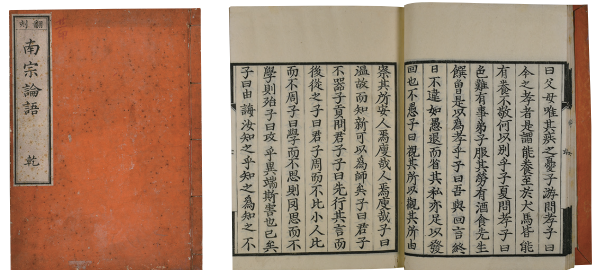 翻刻
南宗論語 乾
曰父母唯其疾之憂子游問孝子曰
今之孝者是謂能養至於犬馬皆能
有養不敬何以別乎子夏問孝子曰
色難有事弟子服其勞有酒食先生
饌曽是以為孝乎子曰吾與回言終
日不違如愚退而省其私亦足以發
回也不愚子曰視其所以觀其所由
察其所安人焉廋哉人焉廋哉子曰
溫故而知新可以為師矣子曰君子
不器子貢問君子子曰先行其言而
後從之子曰君子周而不比小人比
而不周子曰學而不思則罔思而不
學則殆子曰攻乎異端斯害也已矣
子曰由誨汝知之乎知之為知之不